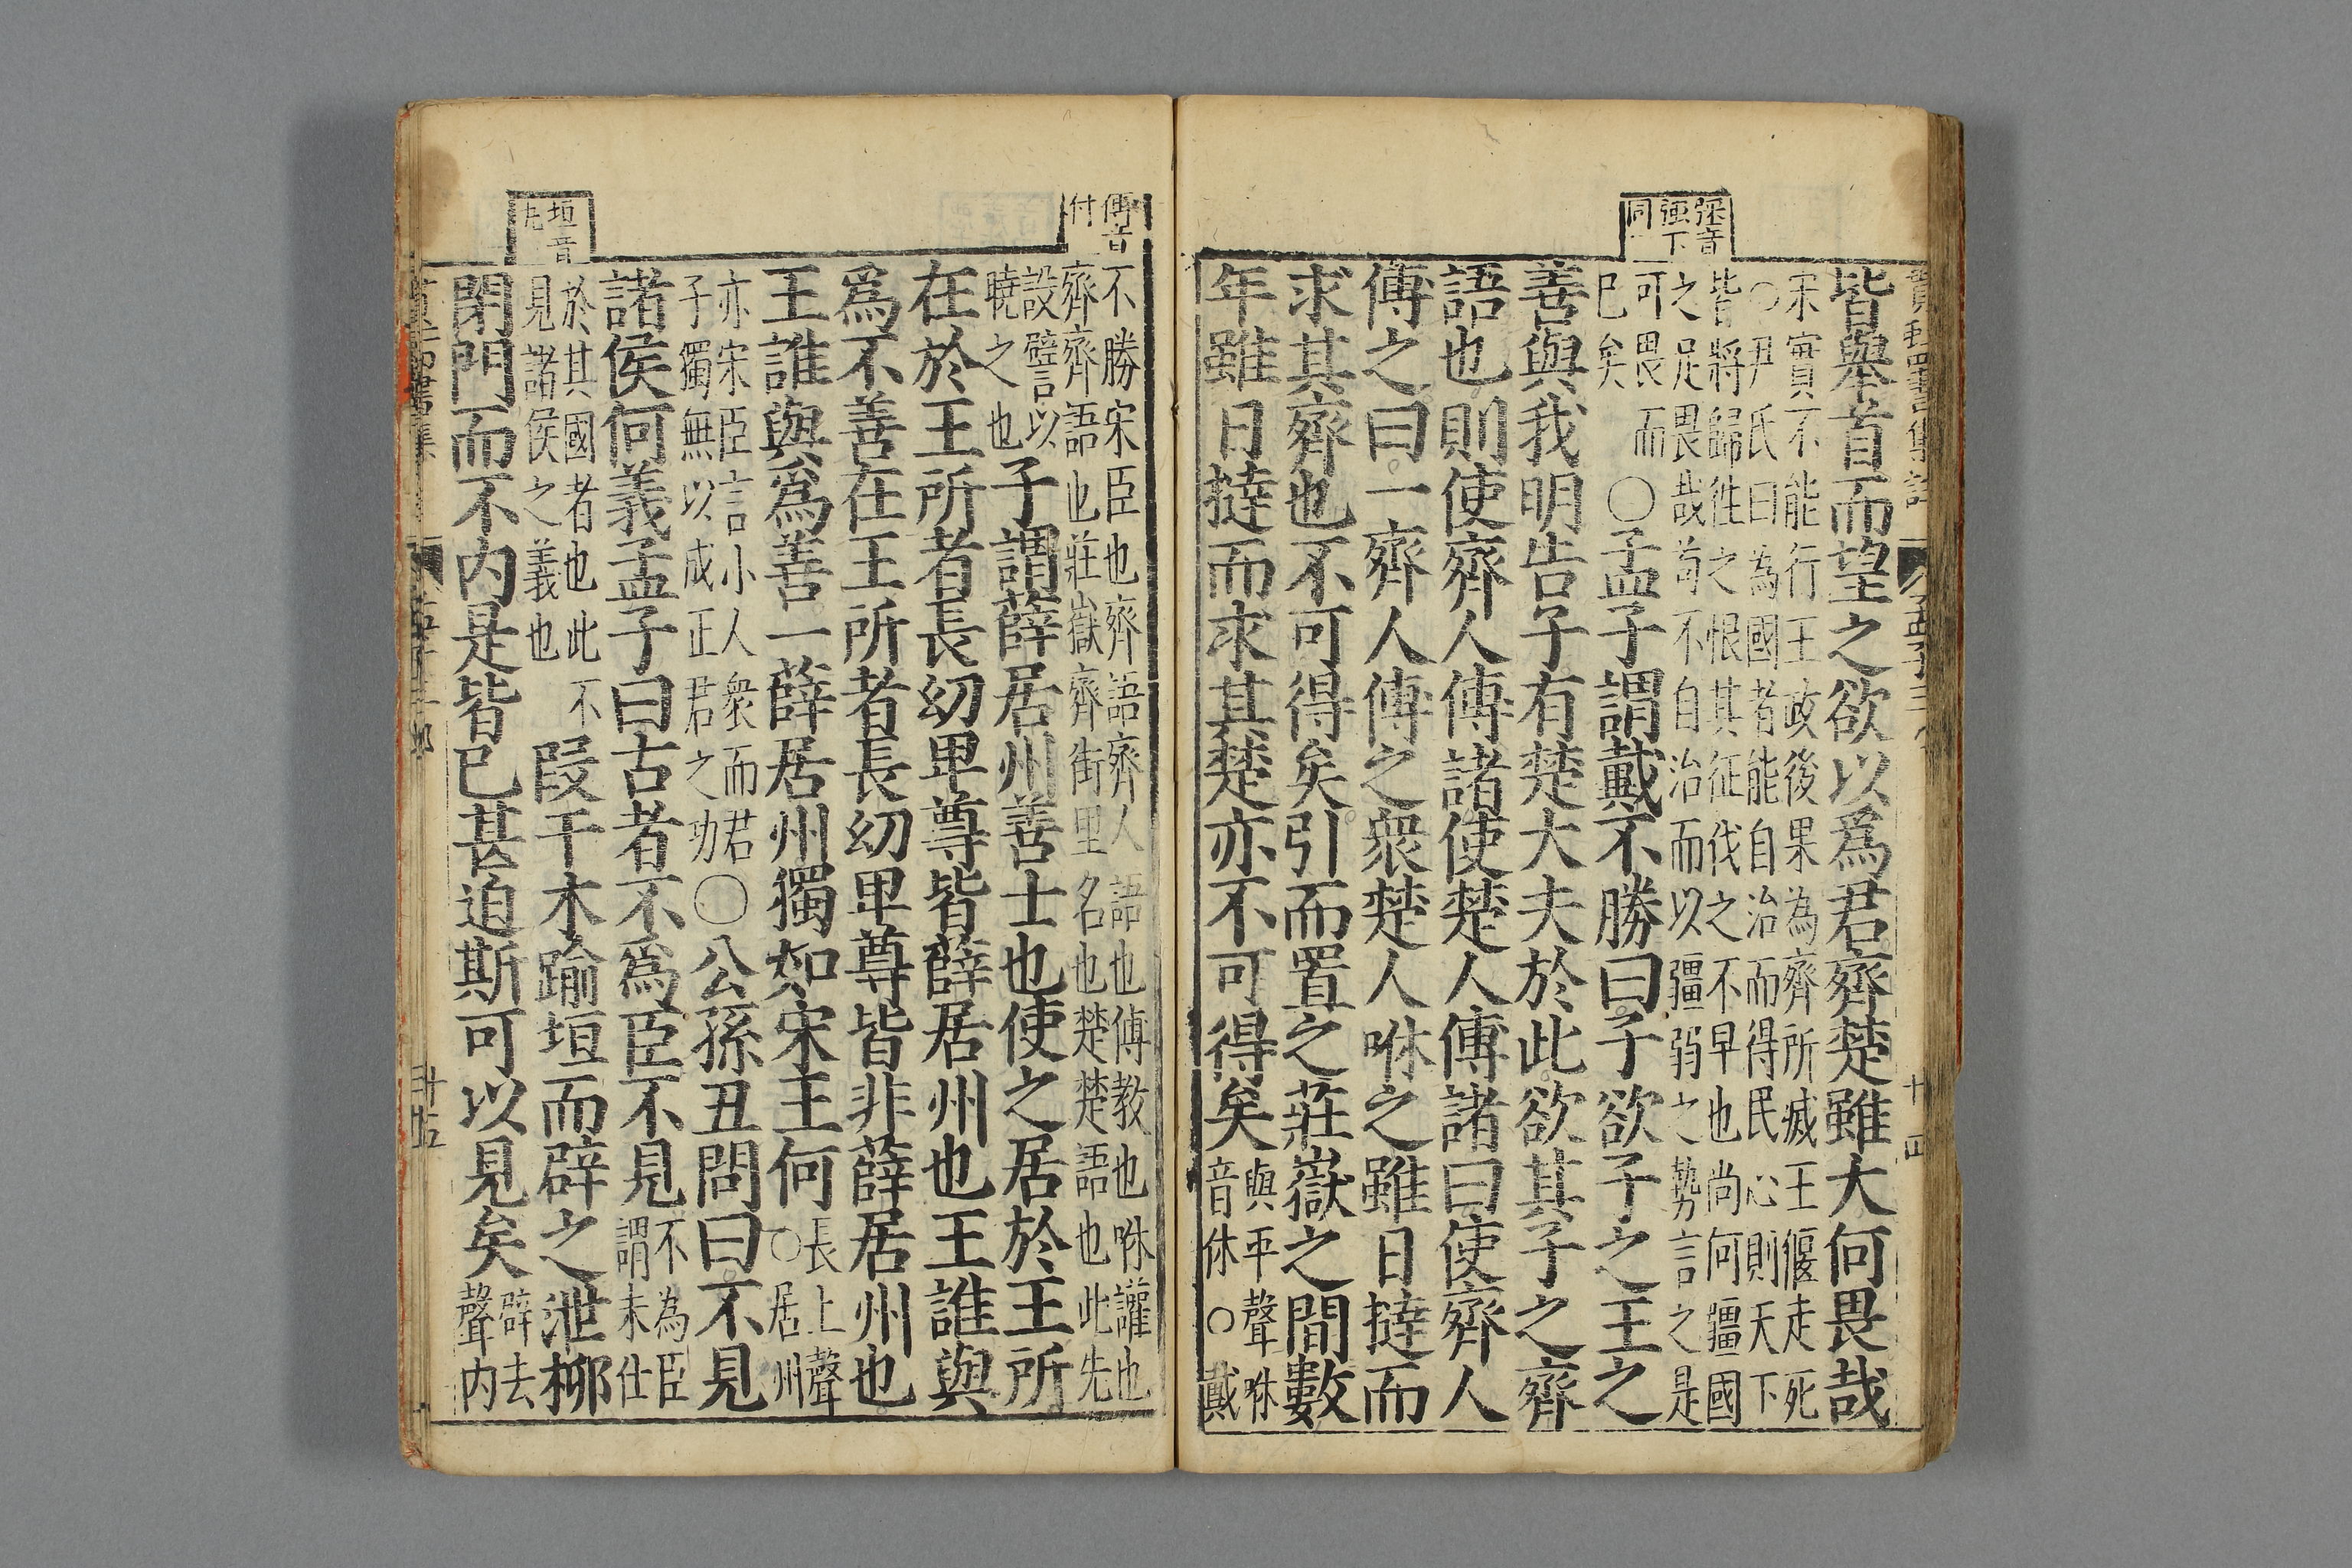 彊音
強下
同
皆舉首而望之欲以爲君齊楚雖大何畏哉
宋實不能行王政後果為齊所滅王偃走死
○尹氏曰為國者能自治而得民心則天下
皆將歸徃之恨其征伐之不早也尚何彊國
之足畏哉苟不自治而以彊弱之勢言之是
可畏而
已矣
○孟子謂戴不勝曰子欲子之王之
善與我明告子有楚大夫於此欲其子之齊
語也則使齊人傅諸使楚人傅諸曰使齊人
傅之曰一齊人傅之衆楚人咻之雖日撻而
求其齊也不可得矣引而置之莊嶽之間數
年雖日撻而求其楚亦不可得矣
與平聲咻
音休○戴
十四
傅音
付
不勝宋臣也齊語齊人語也傅教也咻讙也
齊齊語也莊嶽齊街里名也楚楚語也此先
設譬以
曉之也
子謂薛居州善士也使之居於王所
在於王所者長幼卑尊皆薛居州也王誰與
爲不善在王所者長幼卑尊皆非薛居州也
王誰與爲善一薛居州獨如宋王何
長上聲
○居州
亦宋臣言小人衆而君
子獨無以成正君之功
○公孫丑問曰不見
諸侯何義孟子曰古者不爲臣不見
不為臣
謂未仕
於其國者也此不
見諸侯之義也
段干木踰垣而辟之泄柳
閉門而不内是皆已甚迫斯可以見矣
辟去
聲内
垣音
十五